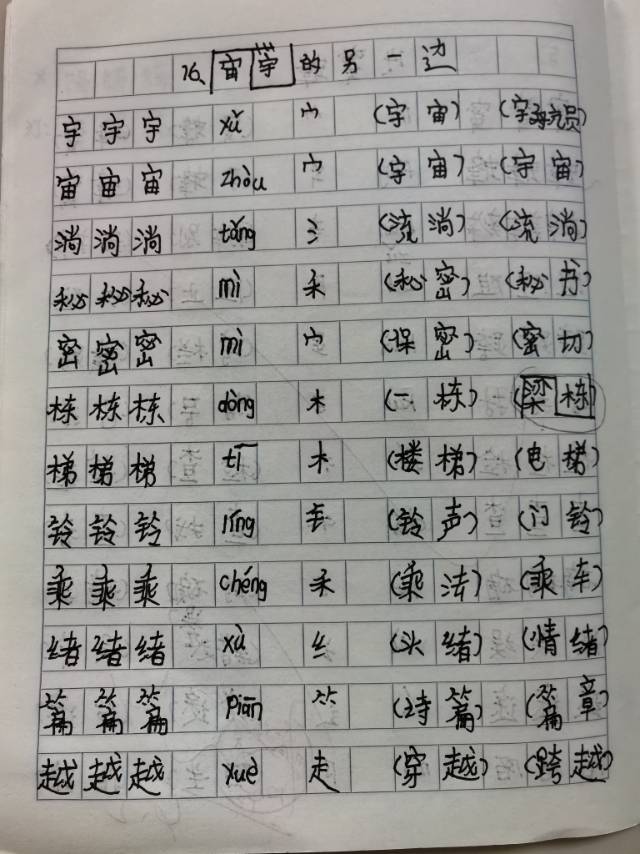 16、宙宇的另一边
宇宇宇 xǔ 宀 (宇宙) (宇航员)
宙宙宙 zhòu 宀 (宇宙) (宇宙)
淌淌淌 tǎng 氵 (流淌) (流淌)
秘秘秘 mì 禾 (秘密) (秘书)
密密密 mì 宀 (保密) (密切)
栋栋栋 dòng 木 (一栋) (梁栋)
梯梯梯 tī 木 (楼梯) (电梯)
铃铃铃 líng 钅 (铃声) (门铃)
乘乘乘 chéng 禾 (乘法) (乘车)
绪绪绪 xù 纟 (头绪) (情绪)
篇篇篇 piān ⺮ (诗篇) (篇章)
越越越 xuè 走 (穿越) (跨越)